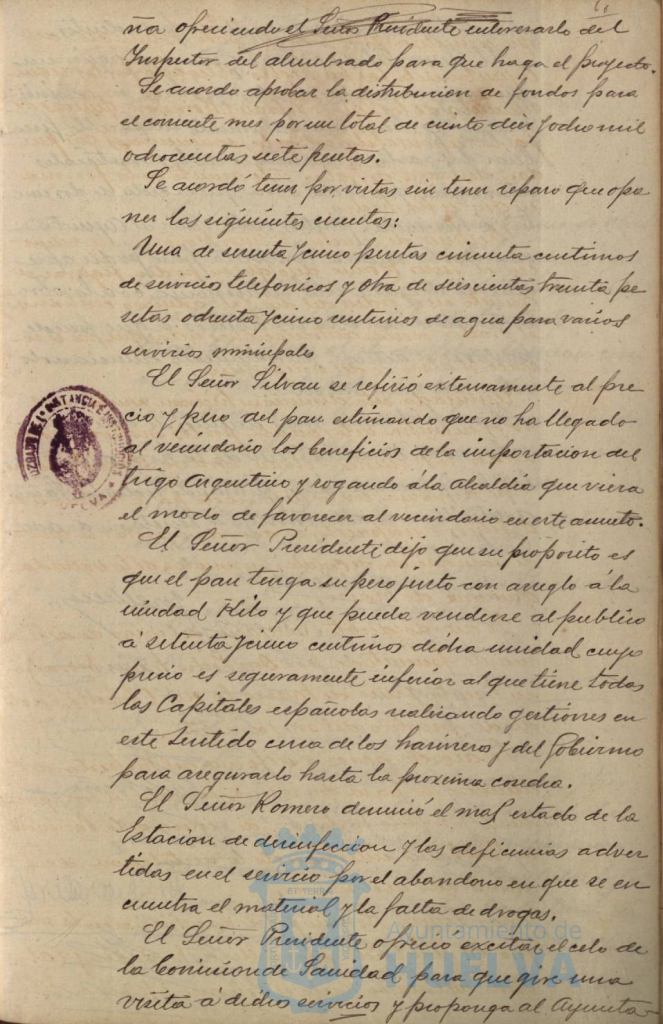 ña ofreciendo el Señor Presidente enterarlo del
Inspector del alumbrado para que haga el proyecto.
Se acordo aprobar la distribucion de fondos para
el corriente mes por un total de ciento diez y ocho mil
ochocientas siete pesetas.
Se acordó tener por vistas sin tener reparo que opo
ner las siguientes cuentas:
Una de setenta y cinco pesetas cincuenta centimos
de servicios telefonicos y otra de seiscientas treinta pe
setas ochenta y cinco centimos de agua para varios
servicios municipales
El Señor Silvan se refirió extensamente al pre
cio y peso del pan estimando que no ha llegado
al vecindario los beneficios de la importacion del
trigo Argentino y rogando á la Alcaldia que viera
el modo de favorecer al vecindario en este asunto.
El Señor Presidente dijo que su proposito es
que el pan tenga su peso justo con arreglo á la
unidad Kilo y que pueda venderse al publico
á setenta y cinco centimos dicha unidad cuyo
precio es seguramente inferior al que tiene todas
las Capitales españolas realizando gestiones en
este sentido cerca de los harineros y del Gobierno
para asegurarlo hasta la proxima cosecha.
El Señor Romero denunció el mal estado de la
Estacion de desinfeccion y las deficiencias adver
tidas en el servicio por el abandono en que se en
cuentra el material y la falta de drogas.
El Señor Presidente ofreció excitar el celo de
la Comision de Sanidad para que gire una
visita á dichos servicios y proponga al Ayunta-
Ayuntamiento de
HUELVA